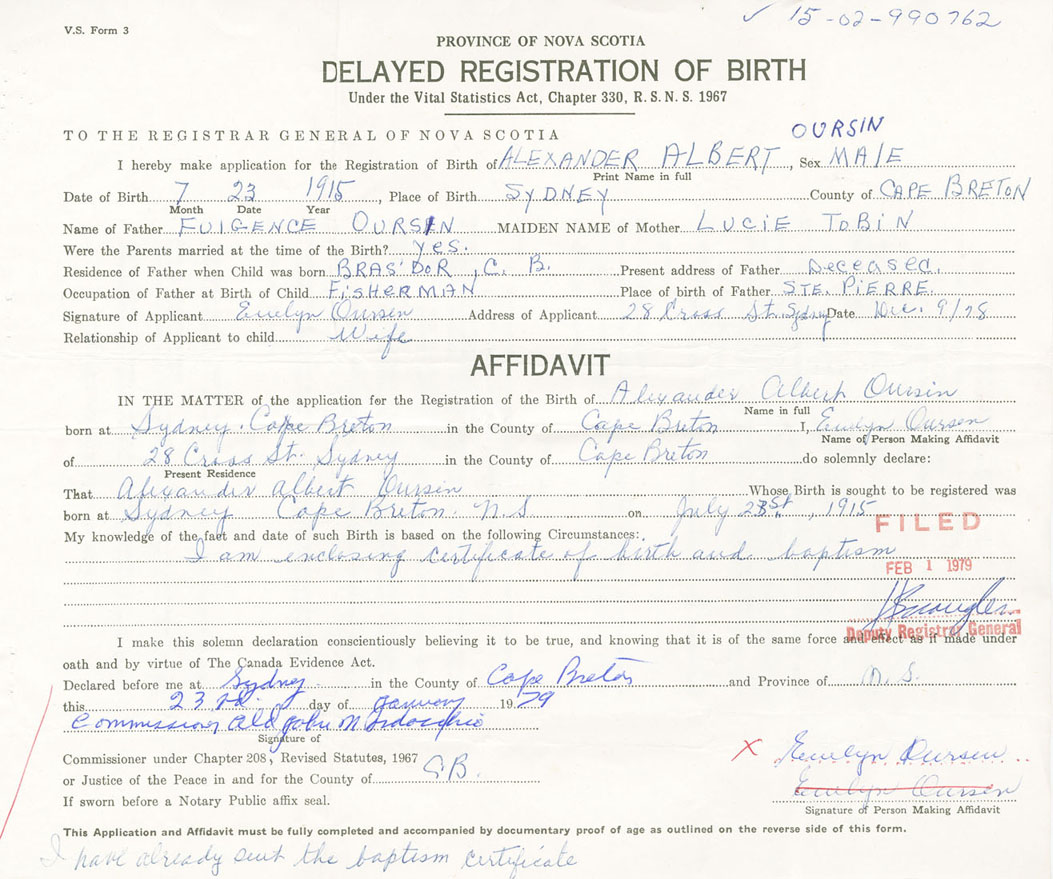 V.S. Form 3
✓ 15-02-990762
PROVINCE OF NOVA SCOTIA
DELAYED REGISTRATION OF BIRTH
Under the Vital Statistics Act, Chapter 330, R. S. N. S. 1967
TO THE REGISTRAR GENERAL OF NOVA SCOTIA
OURSIN
I hereby make application for the Registration of Birth of ALEXANDER ALBERT, Sex MALE
Print Name in full
Date of Birth 7 23 1915, Place of Birth SYDNEY County of CAPE BRETON
Month Date Year
Name of Father FULGENCE OURSIN MAIDEN NAME of Mother LUCIE TOBIN
Were the Parents married at the time of the Birth? yes.
Residence of Father when Child was born BRAS'DOR, C. B. Present address of Father Deceased.
Occupation of Father at Birth of Child FISHERMAN Place of birth of Father STE. PIERRE.
Signature of Applicant Evelyn Oursen Address of Applicant 28 Cross St. Sydney Date Dec. 9/78
Relationship of Applicant to child Wife
AFFIDAVIT
IN THE MATTER of the application for the Registration of the Birth of Alexander Albert Oursin
Name in full
born at Sydney. Cape Breton in the County of Cape Breton I, Evelyn Oursen
Name of Person Making Affidavit
of 28 Cross St. Sydney in the County of Cape Breton do solemnly declare:
Present Residence
That Alexander Albert Oursin Whose Birth is sought to be registered was
born at Sydney Cape Breton. N.S. on July 23st, 1915
My knowledge of the fact and date of such Birth is based on the following Circumstances:
I am enclosing certificate of birth and baptism
FILED
FEB 1 1979
Deputy Registrar General
I make this solemn declaration conscientiously believing it to be true, and knowing that it is of the same force and effect as if made under
oath and by virtue of The Canada Evidence Act.
Declared before me at Sydney in the County of Cape Breton and Province of N.S.
this 23rd day of January 1979
Commissioner Ald John N
Signature of
Commissioner under Chapter 208, Revised Statutes, 1967
or Justice of the Peace in and for the County of C.B.
If sworn before a Notary Public affix seal.
X Evelyn Oursen
Evelyn Oursen
Signature of Person Making Affidavit
This Application and Affidavit must be fully completed and accompanied by documentary proof of age as outlined on the reverse side of this form.
I have already sent the baptism certificate